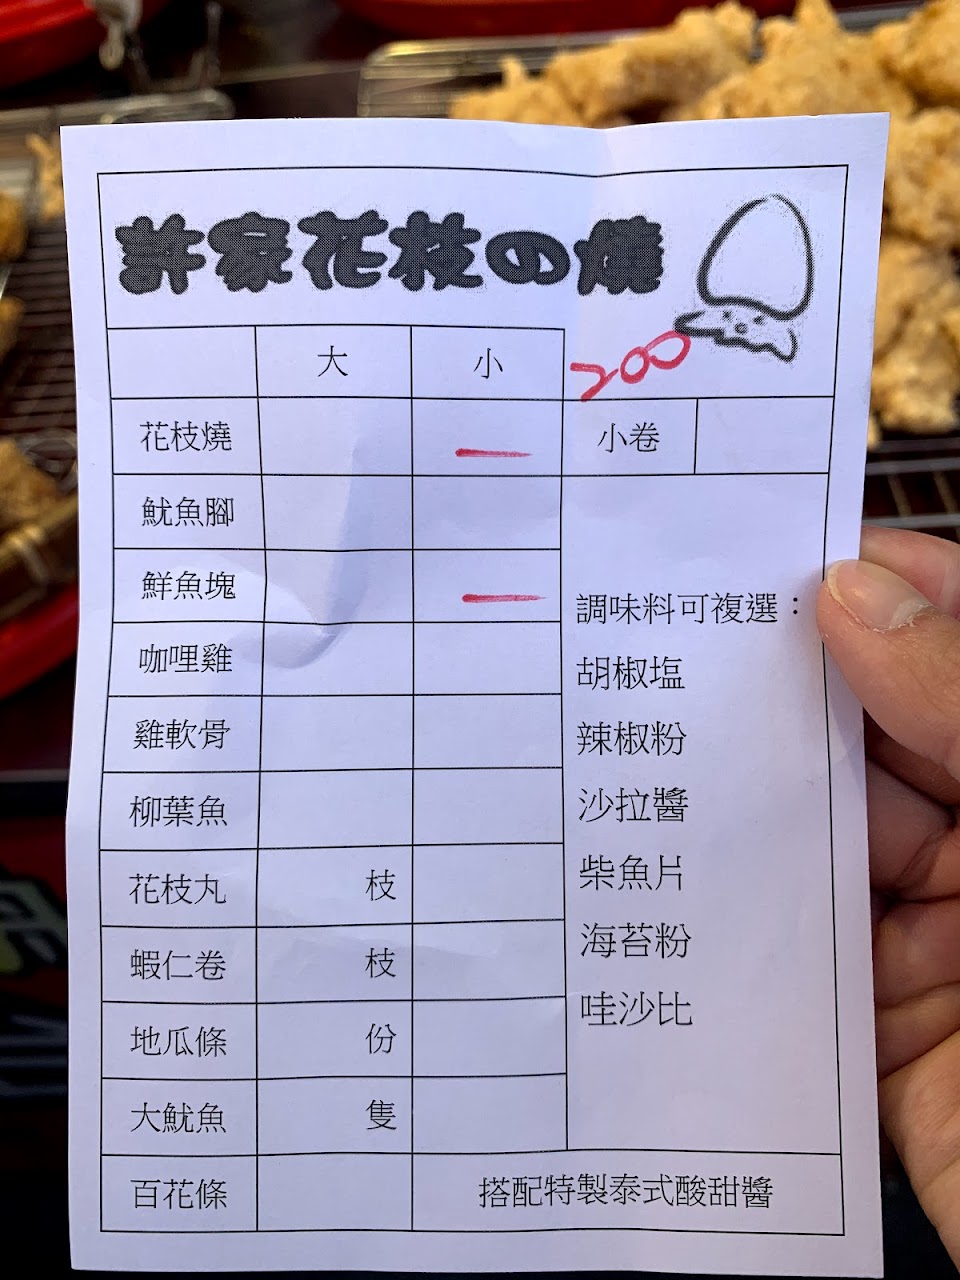 許家花枝の燒
大 小 200
花枝燒 一 小卷
魷魚腳
鮮魚塊 一
咖哩雞
雞軟骨
柳葉魚
花枝丸 枝
蝦仁卷 枝
地瓜條 份
大魷魚 隻
百花條 搭配特製泰式酸甜醬
調味料可複選：
胡椒塩
辣椒粉
沙拉醬
柴魚片
海苔粉
哇沙比